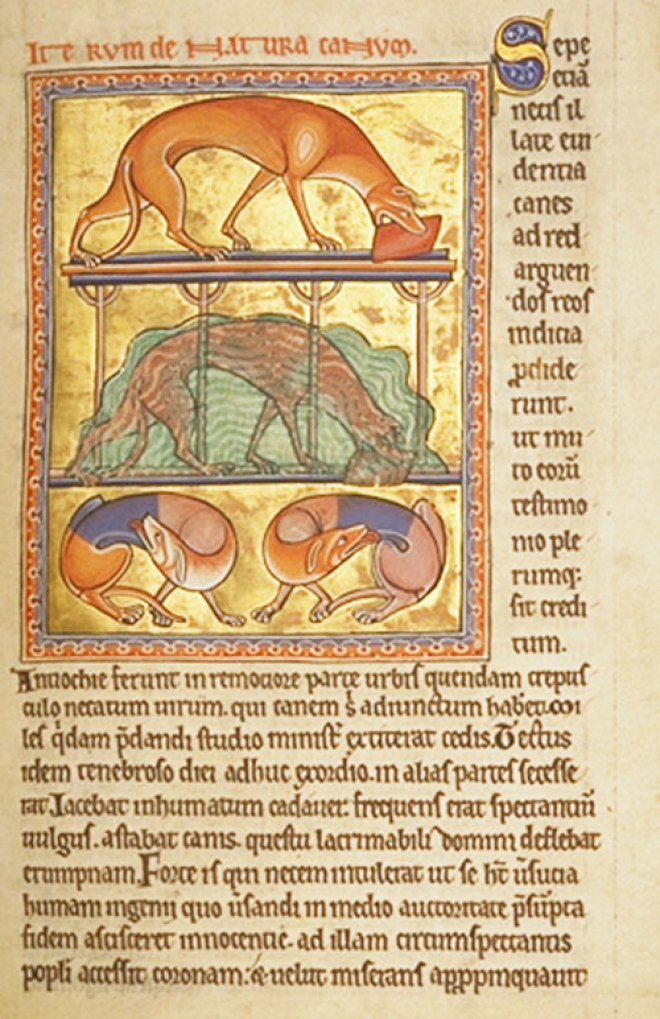 Ite rum de natura canum.
Sepe
eciā
necis il
late eui
dentia
canes
ad red
arguen
dos reos
indicia
pdide
runt.
ut mu
to eorū
testimo
nio ple
rumq;
sit credi
tum.
Antiochie ferunt in remotiore parte urbis quendam crepus
culo necatum uirum. qui canem s̄ adiunctum haberet. Mi
les q̇dam p̄dandi studio minist̄ extiterat cedis. Tectus
idem tenebroso diei adhuc exordio. in alias partes secesse
rat. Iacebat inhumatum cadauer. frequens erat spectantiū
uulgus. astabat canis. questu lacrimabili domini deflebat
erumpnam. Forte is qui necem intulerat ut se h̄t ūsucia
humani ingenij quo ūsandi in medio auctoritate p̄supta
fidem ascisceret innocentie. ad illam circumspectantis
popli accessit coronam. & uelut miserans appropinquauit